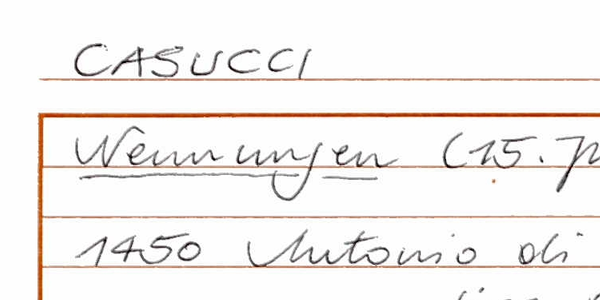 CASUCCI
Nennungen (15. J
1450 Antonio di